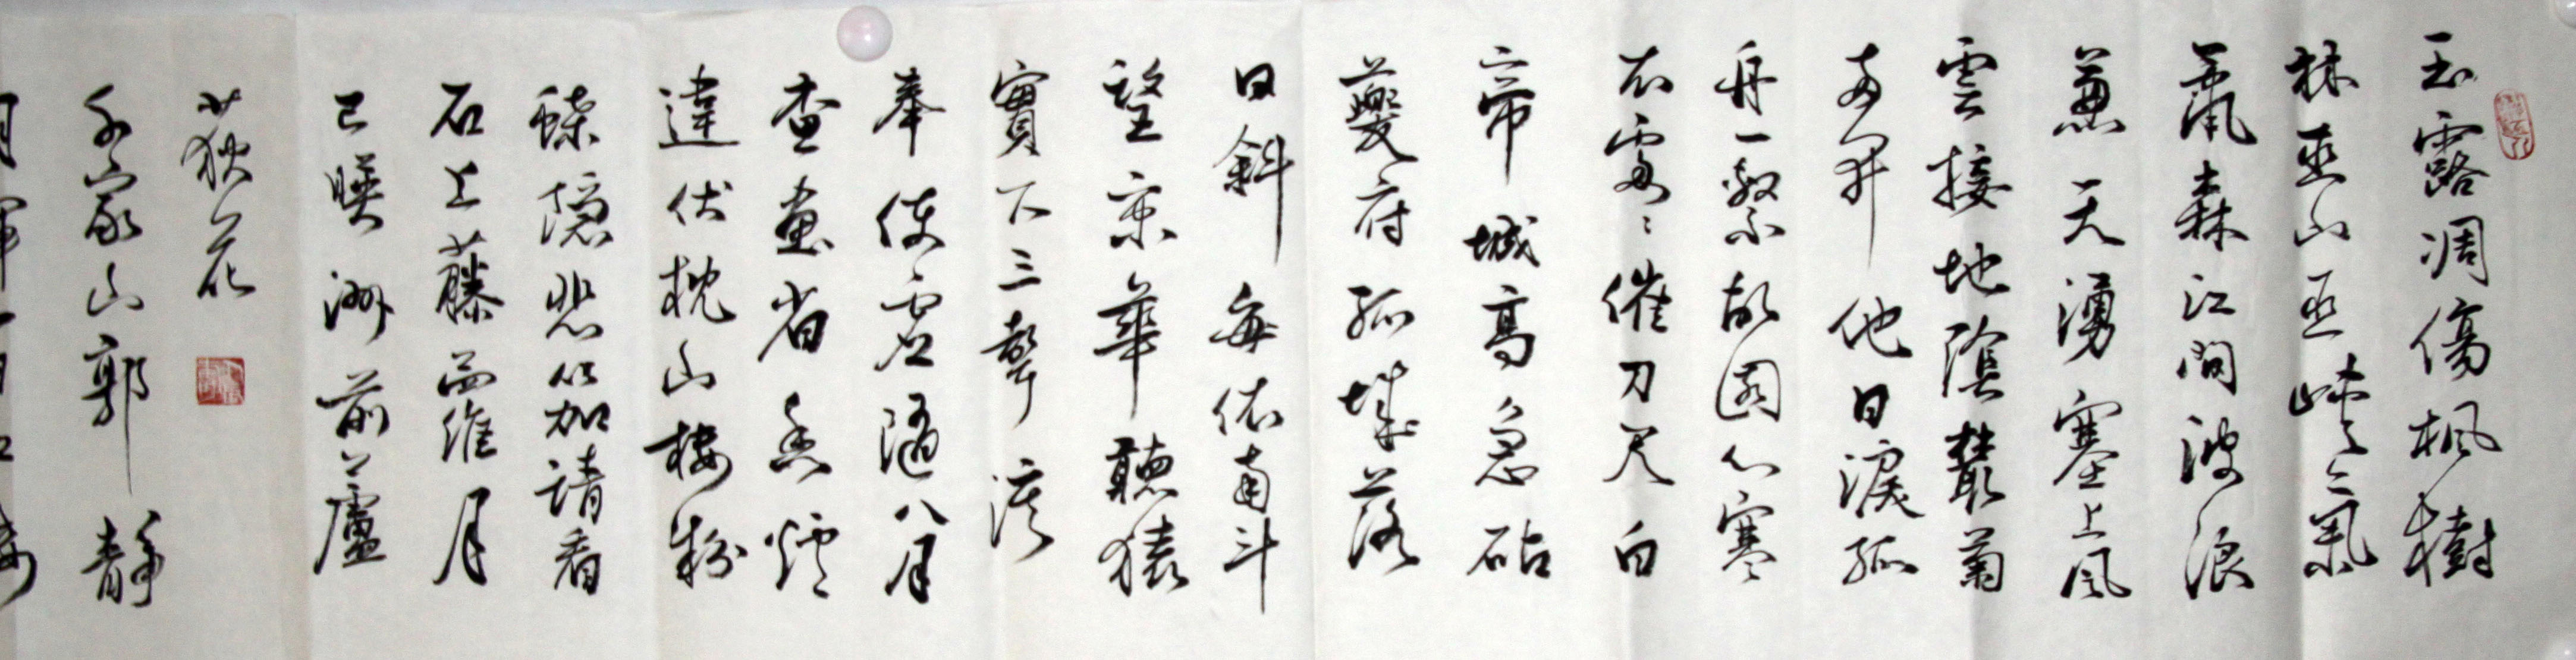 玉露凋傷楓樹
林巫山巫峽氣
蕭森江間波浪
兼天湧塞上風
雲接地陰叢菊
兩開他日淚孤
舟一繫故園心寒
衣處々催刀尺白
帝城高急砧
夔府孤城落
日斜每依南斗
望京華聽猿
實下三聲淚
奉使虛隨八月
查畫省香爐
違伏枕山樓粉
堞隱悲笳請看
石上藤蘿月
已映洲前蘆
荻花
千家山郭靜